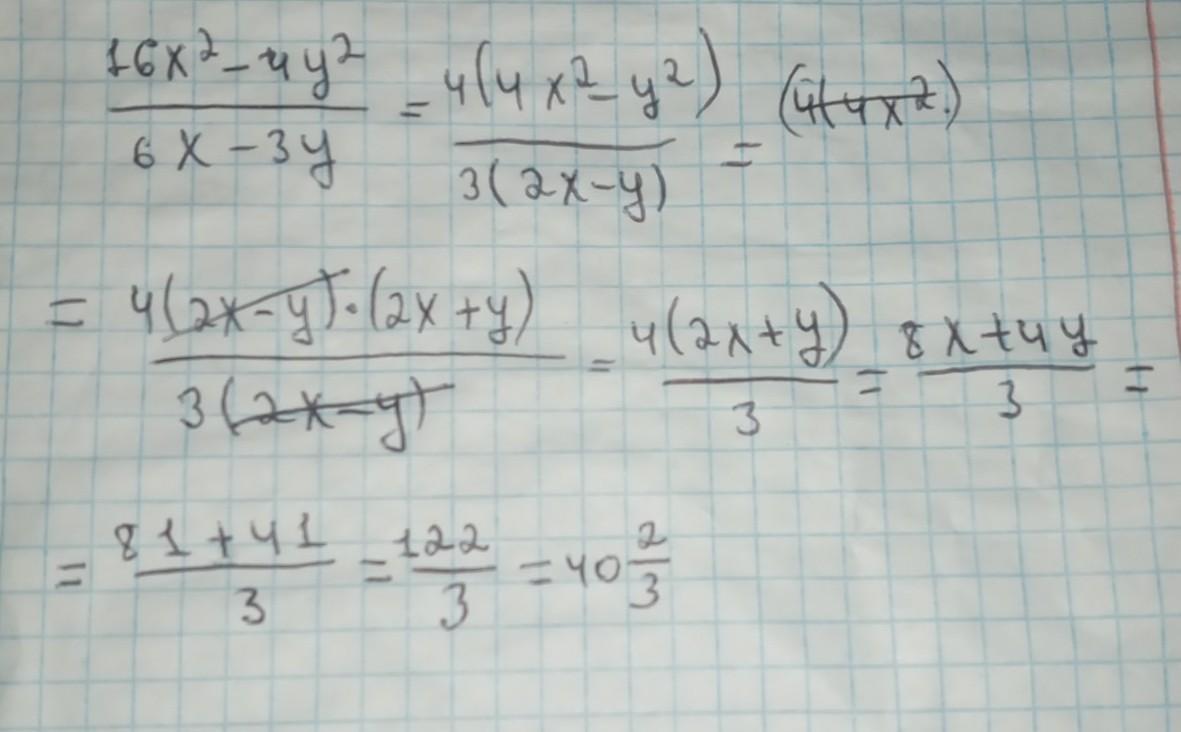 16x² - 4y² / 6x - 3y = 4(4x² - y²) / 3(2x - y) = (4(4x².)
= 4(2x - y) · (2x + y) / 3(2x - y) = 4(2x + y) / 3 = 8x + 4y / 3 =
= 81 + 41 / 3 = 122 / 3 = 40 2/3